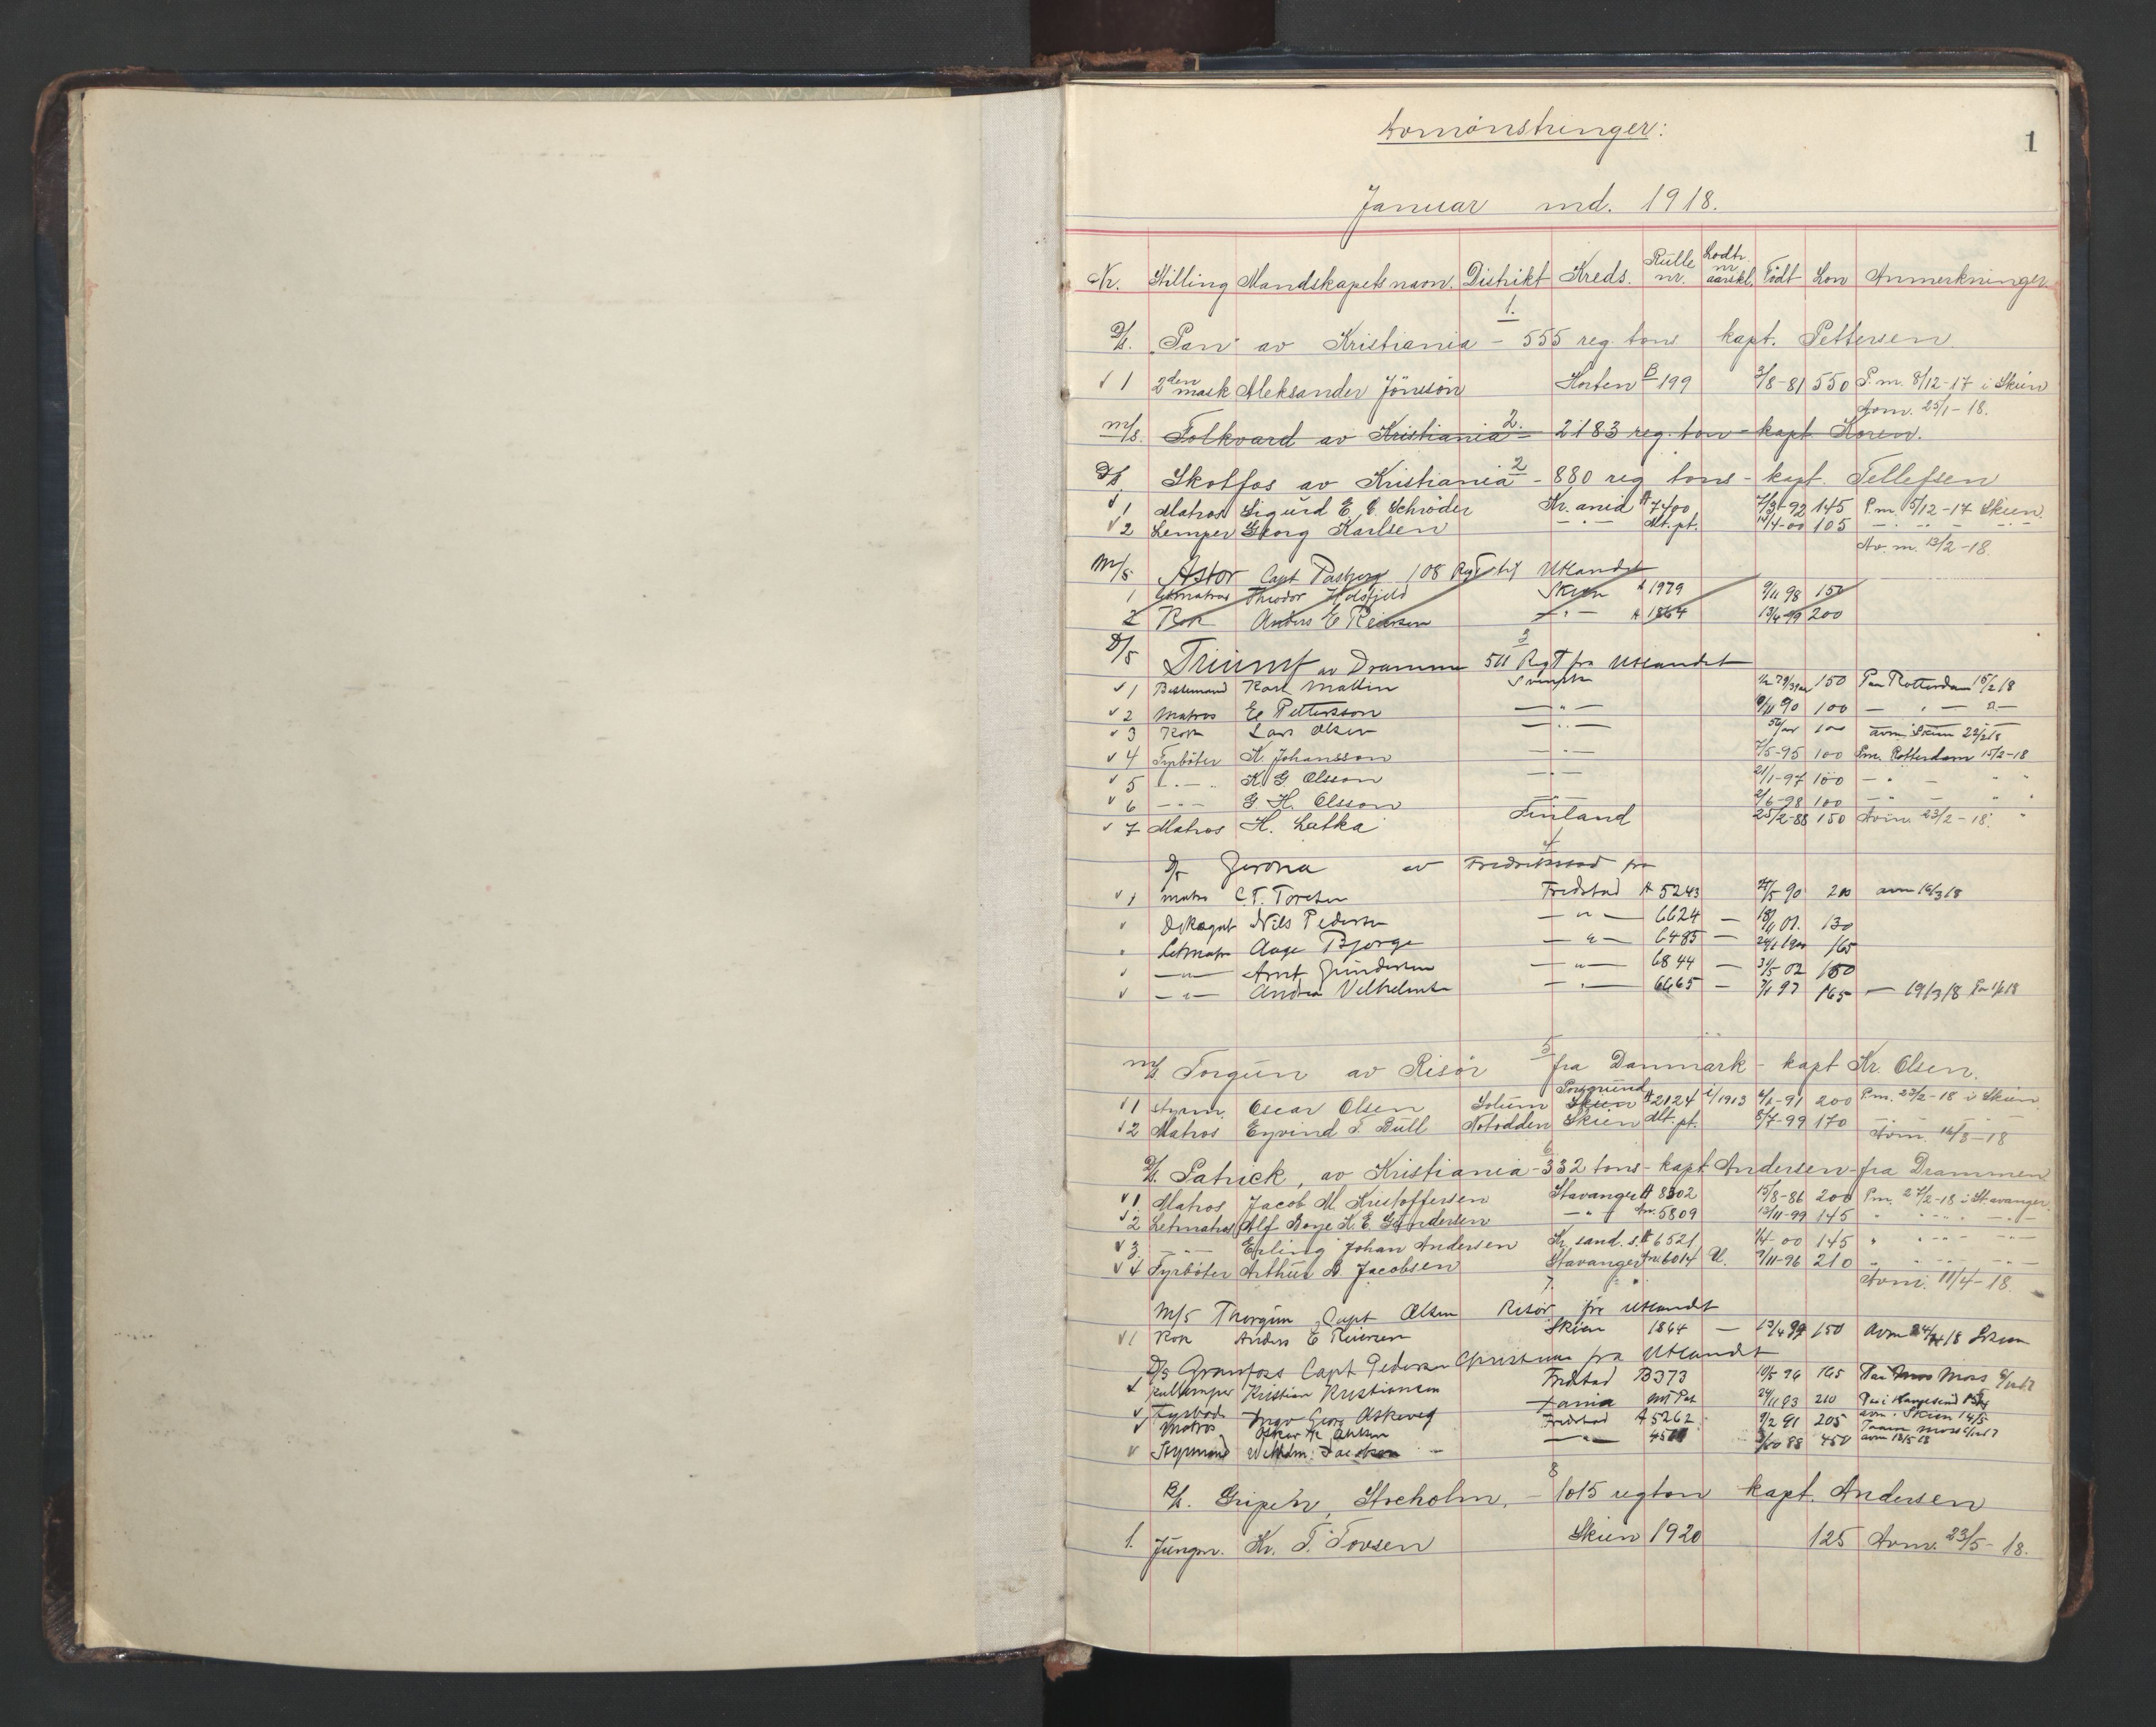 Avmønstringer:
1
Januar md. 1918.
Nr. Stilling Mandskapets navn. Distrikt Kreds. Rulle nr. Lodtr. nr aarskl. Født Løn Anmerkninger
1.
D/s. "Pan" av Kristiania - 555 reg. tons kapt. Pettersen.
√ 1 2den mask Aleksander Jönsson Horten B 199 3/8-81 550 P.m. 8/12-17 i Skien
Avm. 25/1-18.
2.
m/s. Folkvard av Kristiania - 2183 reg. ton - kapt Koren.
2
D/s. Skotfos av Kristiania - 880 reg tons - kapt. Tellefsen
√ 1 Matros Sigurd E. C. Schrøder Kr.ania A 7400 7/3-92 145 P.m. 5/12-17 Skien.
√ 2 Lemper Georg Karlsen - " - Mt.pt. 14/4-00 105 - " - " -
Av. m. 13/2-18.
M/s Astor Capt 108 Regt til Utlandet
1 Letmatros Theodor Skien A 1979 9/11 98 150
2 Kok Anders E Reiersen - " - A 1864 13/4-99 200
3
D/s Triumf av Drammen 511 RegT fra Utlandet
√ 1 Bestemand Karl Mattin 150 Paa Rotterdam 15/2 18
√ 2 Matros El Pettersson - " - 9/11 90 100 - " - " -
√ 3 Kok Lars Olsen - " - 56 aar 100 avm. i Skien 23/2 18
√ 4 Fyrbøter K. Johansson - " - 7/5-95 100 Pm. Rotterdam 15/2-18
√ 5 - " - K. G. Olsson - " - 21/1-97 100 - " - " "
√ 6 - " - G. H. Olsson - " - 2/6-98 100 - " - " "
√ 7 Matros H. Latka Finland 25/2-88 150 Avm. 23/2-18.
4
D/s Jerona av Fredrikstad fra
√ 1 Matros C. T. Toresen Fredstad A 5243 5/90 200 avm 16/3 18
√ Dæksgut Nils Pedersen - " - 6624 - 18/11 01. 130
" Letmatr Aage Bjorge - " - 6485 - 165
√ - " - Arnt Gundersen - " - 6844 - 31/5 02 150
√ - " - Andrea Vilhelmsen - " - 6665 - 7/1 97 165 - 19/3 18
5
m/s. Torgun av Risør fra Danmark - kapt Kr. Olsen.
√ 1 styrm. Oscar Olsen Solum Skien Porsgrund A 2124 i/1913 6/1-91 200 P.m. 23/2-18 i Skien
√ 2 Matros Eyvind T. Bull Notodden Skien Mt. pt. 8/7-99 170 - " - " -
Avm. 16/3-18
6.
D/s. Patrick, av Kristiania - 332 tons - kapt Andersen - fra Drammen
√ 1. Matros Jacob M. Kristoffersen Stavanger A 8302 15/8-86 200 P.m. 27/2-18 i Stavanger.
√ 2 Letmatros Alf Borge K. E. Gundersen - " - Am. 5809 13/11-99 145 " " - " -
√ 3. - " - Erling Johan Andersen Kr.sand. s. A 6521 1/4-00 145 " " - " -
√ 4 Fyrbøter Arthur B Jacobsen Stavanger Am 6014 U. 9/11-96 210 " " - " -
Avm. 11/4-18.
7.
M/s Thorgun, Capt Olsen Risør fra Utlandet
√ 1 Kok Anders E Reiersen Skien 1864 - 13/4 99 150 Avm 24/4 18 Skien
D/s Granfoss Capt Pedersen Christiania fra Utlandet
√ Kullemper Kristian Kristiansen Fredstad B 373 10/5 96 165 Paa Moss
√ Fyrbøt Ingv Georg Askeveg X ania Mt Pat 24/11 93 210 Paa i Haugesund
√ Matros Oskar Fredstad A 5262 9/2 91 205 avm i Skien 14/5
√ Styrmand Wilhelm. Jacobsen - - " - 3/10 88 450 avm 13/5 18
8
D/s. Gripen, Stocholm. - 1015 regton kapt. Andersen
1. Jungm. Kr. T. Tovsen Skien 1920 125 Avm. 23/5-18.